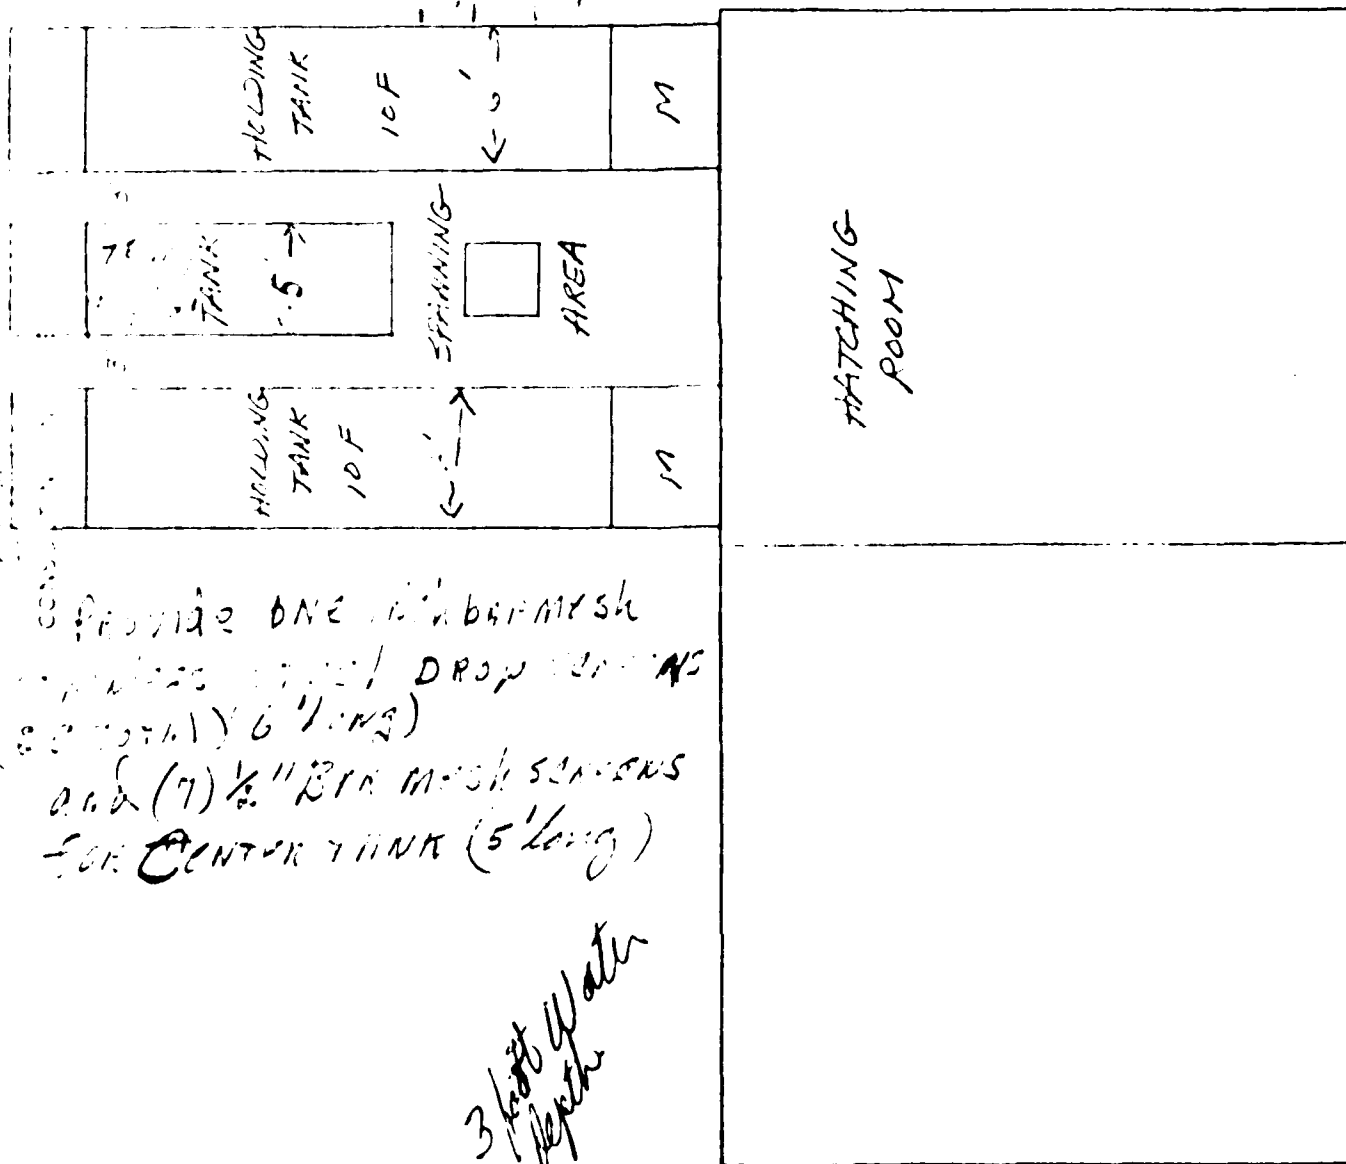 HOLDING
TANK
10F
6'
M
TANK
5'
SPAWNING
AREA
HOLDING
TANK
10F
6'
M
HATCHING
ROOM
Provide ONE barmesh
DROP
6' long)
and (7) ½" BAR mesh screens
FOR CENTER TANK (5' long)
3 foot Water
depth